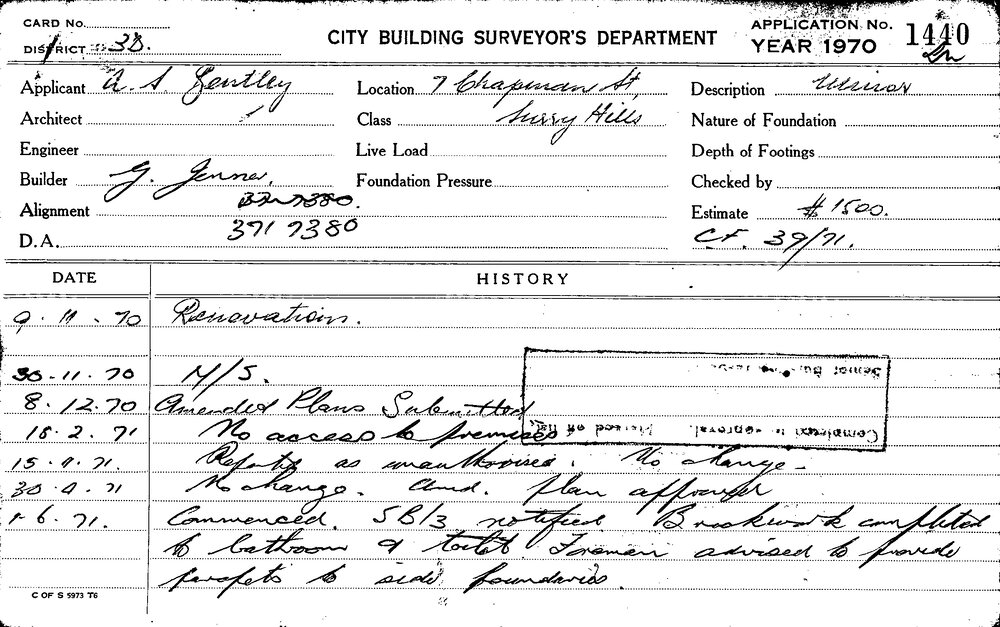 CARD No.
DISTRICT 3D.
CITY BUILDING SURVEYOR'S DEPARTMENT
APPLICATION No. 1440
YEAR 1970
Applicant A. S. Gentley
Location 7 Chapman St,
Description Minor
Architect
Class Surry Hills
Nature of Foundation
Engineer
Live Load
Depth of Footings
Builder G. Jenner.
Foundation Pressure
Checked by
Alignment 371 7380.
Estimate $1500.
D.A. 371 7380
CF. 39/71.
DATE HISTORY
9.11.70 Renovations.
30.11.70 M/S.
8.12.70 Amended Plans Submitted
18.2.71 No access to premises
15.4.71. Reports as unauthorised. No change-
30.4.71 No change. Amd. plan approved
1.6.71. Commenced. SB/3 notified Brickwork completed
to bathroom & toilet Foreman advised to provide
parapets to side boundaries.
Completed to approval.
C OF S 5973 T6